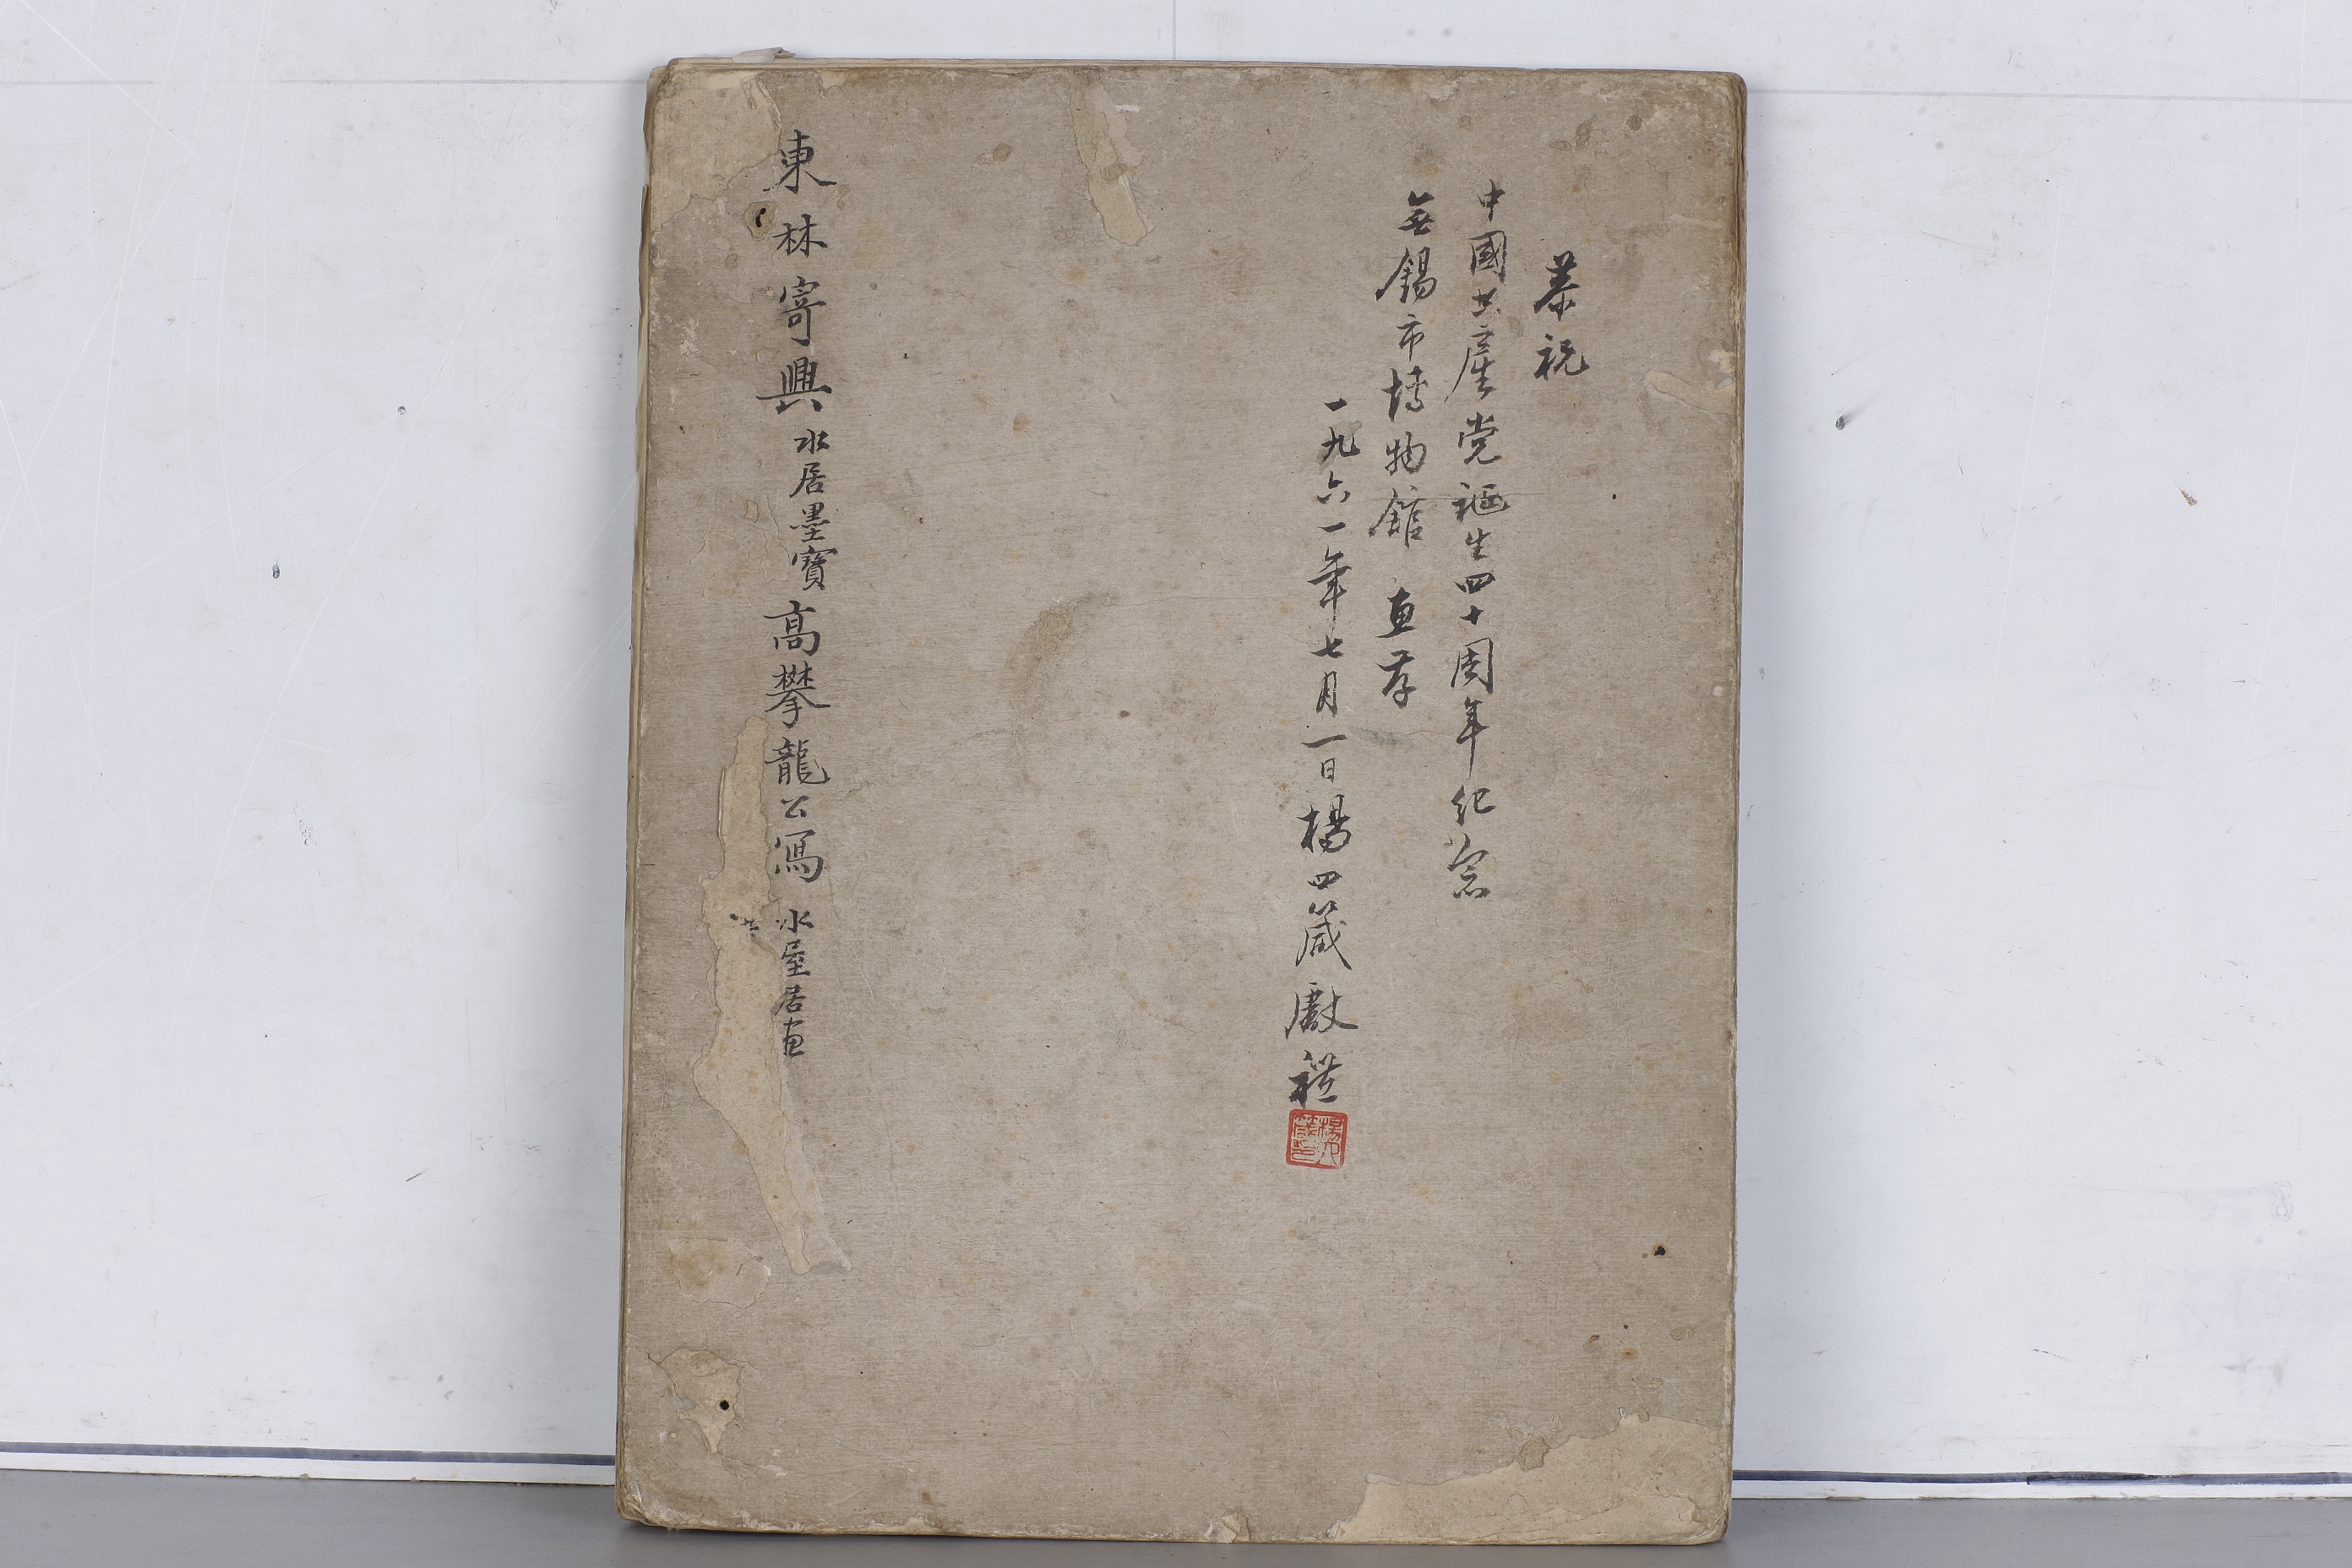 恭祝
中國共產党誕生四十周年纪念
無錫市博物館 惠存
一九六一年七月一日楊四箴獻禮
東林寄興水居墨寶高攀龍公寫 水居